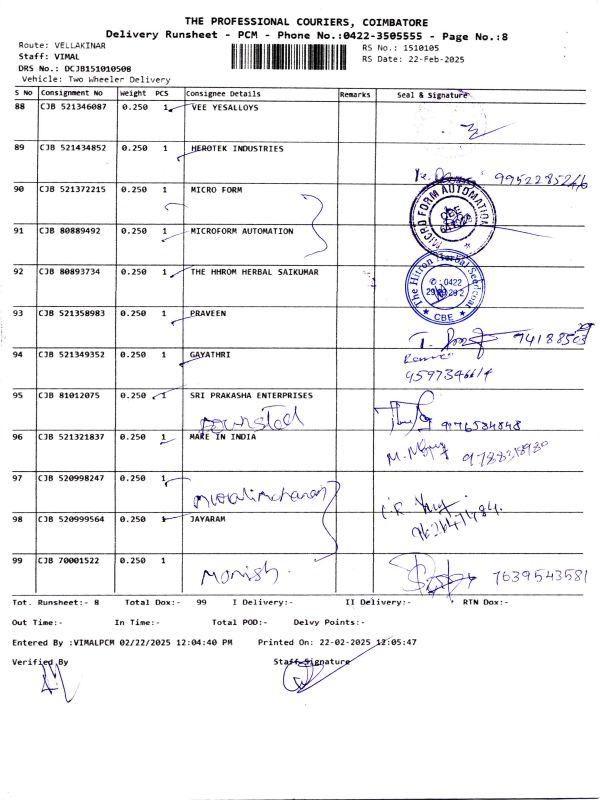 THE PROFESSIONAL COURIERS, COIMBATORE
Delivery Runsheet - PCM - Phone No.:0422-3505555 - Page No.:8
Route: VELLAKINAR
RS No.: 1510105
Staff: VIMAL
RS Date: 22-Feb-2025
DRS No.: DCJB151010508
Vehicle: Two Wheeler Delivery
S No Consignment No Weight PCS Consignee Details Remarks Seal & Signature
88 CJB 521346087 0.250 1 VEE YESALLOYS
89 CJB 521434852 0.250 1 HEROTEK INDUSTRIES
9952285246
90 CJB 521372215 0.250 1 MICRO FORM
MICRO FORM AUTOMATION
CBE
91 CJB 80889492 0.250 1 MICROFORM AUTOMATION
92 CJB 80893734 0.250 1 THE HHROM HERBAL SAIKUMAR
0422
CBE
93 CJB 521358983 0.250 1 PRAVEEN
94 CJB 521349352 0.250 1 GAYATHRI
95 CJB 81012075 0.250 1 SRI PRAKASHA ENTERPRISES
96 CJB 521321837 0.250 1 MAKE IN INDIA
97 CJB 520998247 0.250 1
98 CJB 520999564 0.250 1 JAYARAM
99 CJB 70001522 0.250 1
Monish.
7639543581
Tot. Runsheet:- 8 Total Dox:- 99 I Delivery:- II Delivery:- RTN Dox:-
Out Time:- In Time:- Total POD:- Delvy Points:-
Entered By :VIMALPCM 02/22/2025 12:04:40 PM Printed On: 22-02-2025 12:05:47
Verified By Staff Signature